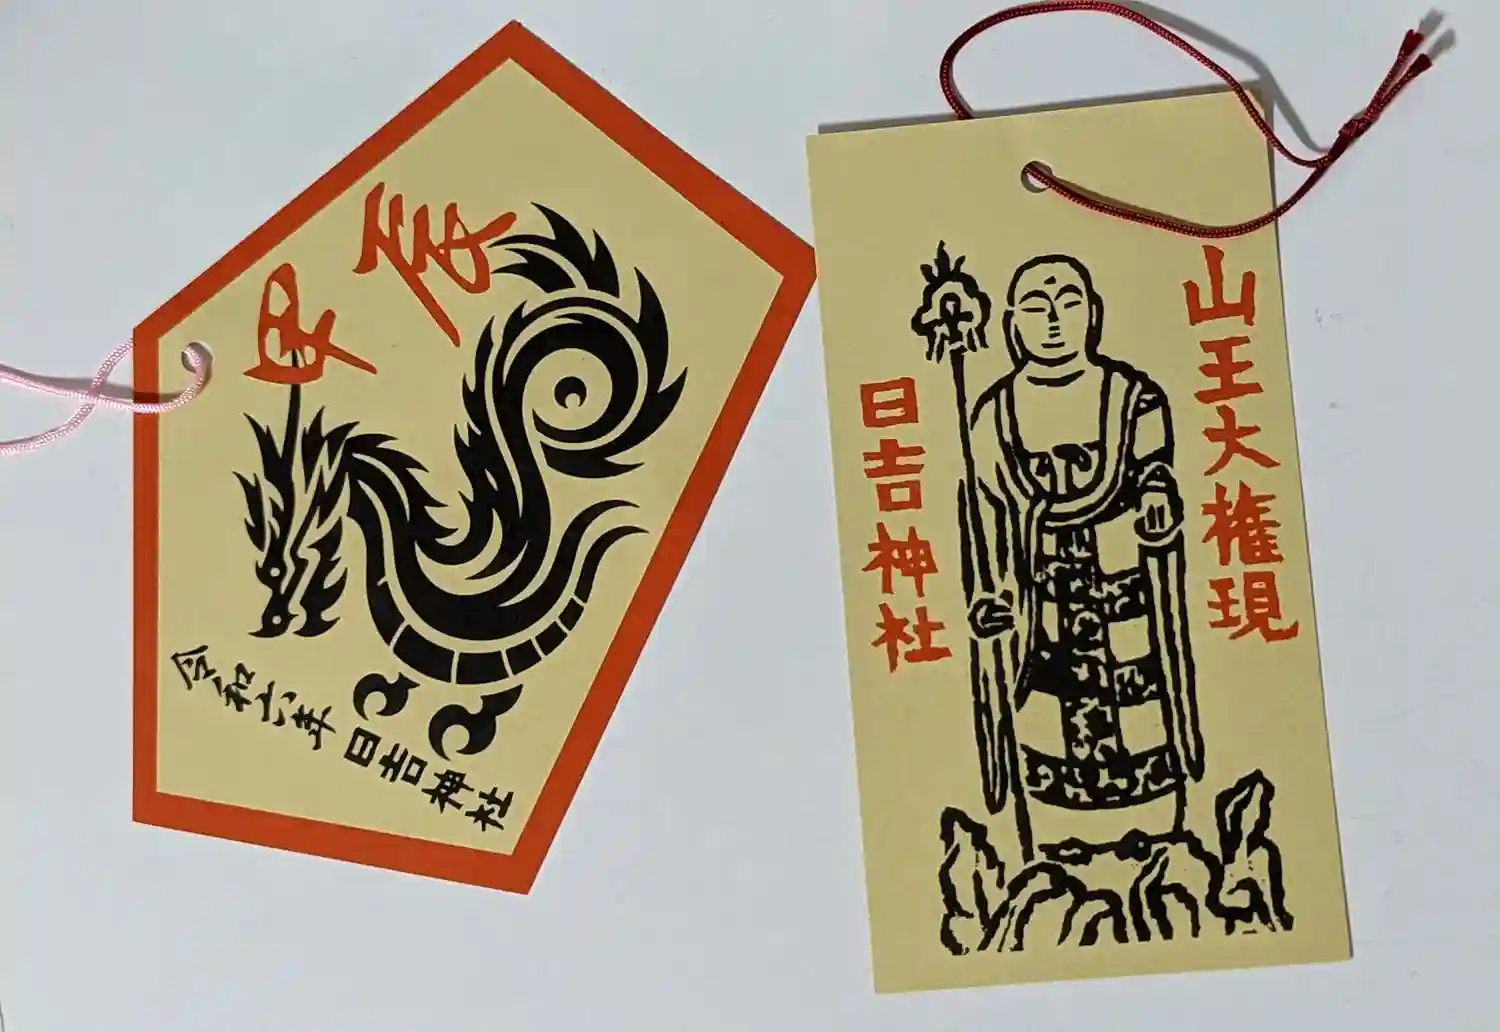 甲辰
令和六年 日吉神社
山王大権現
日吉神社